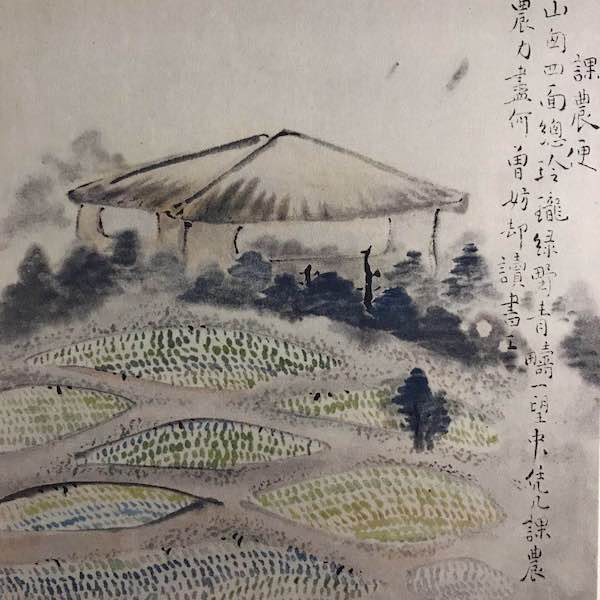 課農便
山囱四面總玲瓏綠野青疇一望中凭几課農
農力盡何曾妨却讀書工